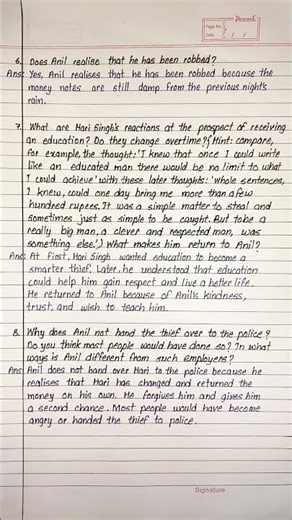 Page No.
Date / /
6. Does Anil realise that he has been robbed?
Ans: Yes, Anil realises that he has been robbed because the
money notes are still damp from the previous night's
rain.
7. What are Hari Singh's reactions at the prospect of receiving
an education? Do they change overtime? (Hint: compare,
for example, the thought: 'I knew that once I could write
like an educated man there would be no limit to what
I could achieve' with these later thoughts: 'whole sentences,
I knew, could one day bring me more than a few
hundred rupees. It was a simple matter to steal and
sometimes just as simple to be caught. But to be a
really big man, a clever and respected man, was
something else.') What makes him return to Anil?
Ans: At first, Hari Singh wanted education to become a
smarter thief. Later, he understood that education
could help him gain respect and live a better life.
He returned to Anil because of Anil's kindness,
trust, and wish to teach him.
8. Why does Anil not hand the thief over to the police?
Do you think most people would have done so? In what
ways is Anil different from such employers?
Ans: Anil does not hand over Hari to the police because he
realises that Hari has changed and returned the
money on his own. He forgives him and gives him
a second chance. Most people would have become
angry or handed the thief to police.
Signature